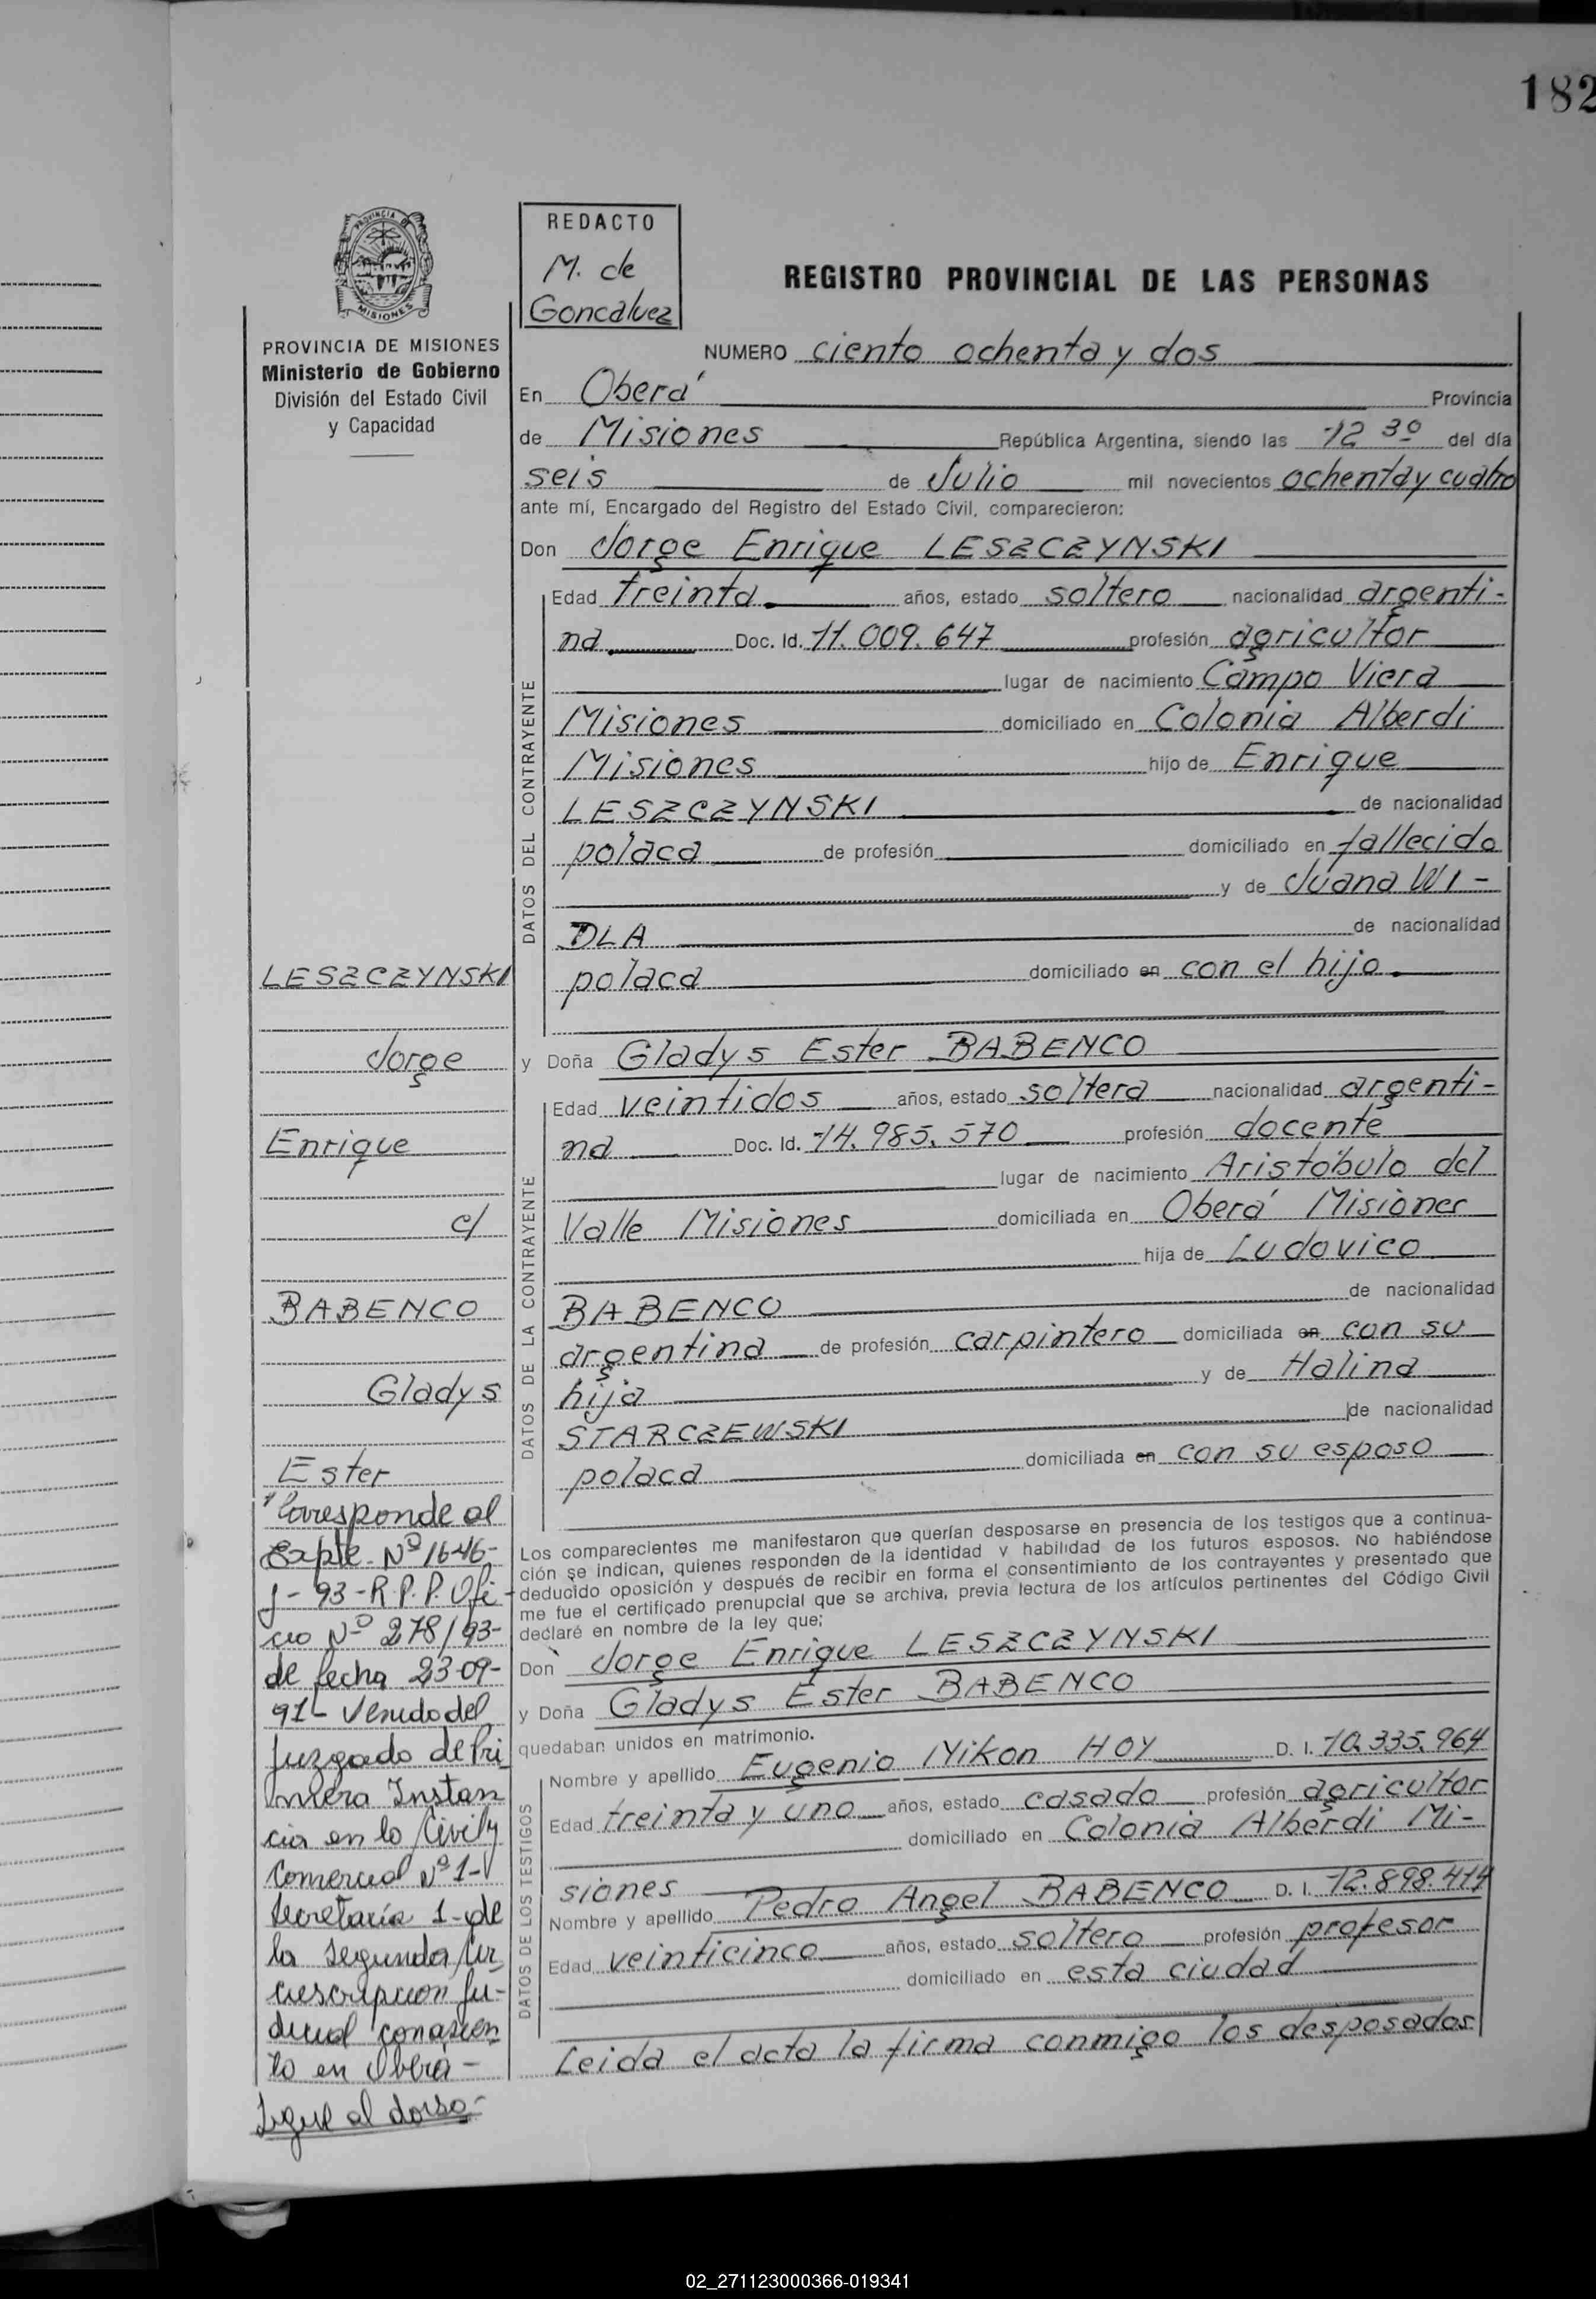 182
REDACTO
M. de
Goncalvez
REGISTRO PROVINCIAL DE LAS PERSONAS
PROVINCIA DE
MISIONES
PROVINCIA DE MISIONES
Ministerio de Gobierno
División del Estado Civil
y Capacidad
NUMERO ciento ochenta y dos
En Oberá Provincia
de Misiones República Argentina, siendo las 12 30 del día
seis de Julio mil novecientos ochenta y cuatro
ante mí, Encargado del Registro del Estado Civil, comparecieron:
Don Jorge Enrique LESZCZYNSKI
DATOS DEL CONTRAYENTE
Edad treinta años, estado soltero nacionalidad argenti-
na Doc. Id. 11.009.647 profesión agricultor
lugar de nacimiento Campo Viera
Misiones domiciliado en Colonia Alberdi
Misiones hijo de Enrique
LESZCZYNSKI de nacionalidad
polaca de profesión domiciliado en fallecido
y de Juana WI-
DLA de nacionalidad
polaca domiciliado en con el hijo
y Doña Gladys Ester BABENCO
DATOS DE LA CONTRAYENTE
Edad veintidos años, estado soltera nacionalidad argenti-
na Doc. Id. 14.985.570 profesión docente
lugar de nacimiento Aristóbulo del
Valle Misiones domiciliada en Oberá Misiones
hija de Ludovico
BABENCO de nacionalidad
argentina de profesión carpintero domiciliada en con su
hija y de Halina
STARCZEWSKI de nacionalidad
polaca domiciliada en con su esposo
Los comparecientes me manifestaron que querían desposarse en presencia de los testigos que a continua-
ción se indican, quienes responden de la identidad y habilidad de los futuros esposos. No habiéndose
deducido oposición y después de recibir en forma el consentimiento de los contrayentes y presentado que
me fue el certificado prenupcial que se archiva, previa lectura de los artículos pertinentes del Código Civil
declaré en nombre de la ley que;
Don Jorge Enrique LESZCZYNSKI
y Doña Gladys Ester BABENCO
quedaban unidos en matrimonio.
DATOS DE LOS TESTIGOS
Nombre y apellido Eugenio Nikon HOY D. I. 10.335.964
Edad treinta y uno años, estado casado profesión agricultor
domiciliado en Colonia Alberdi Mi-
siones
Nombre y apellido Pedro Angel BABENCO D. I. 12.898.414
Edad veinticinco años, estado soltero profesión profesor
domiciliado en esta ciudad
Leida el acta la firma conmigo los desposados
LESZCZYNSKI
Jorge
Enrique
c/
BABENCO
Gladys
Ester
Corresponde al
Expte. Nº 1646-
J-93-R.P.P. Ofi-
cio Nº 278/93-
de fecha 23-09-
91- Venido del
Juzgado de Pri
mera Instan
cia en lo Civil y
Comercial Nº 1-
Secretaría 1- de
la Segunda Cir
cunscripcion Ju-
dicial con asien
to en Oberá-
Sigue al dorso-
02_271123000366-019341